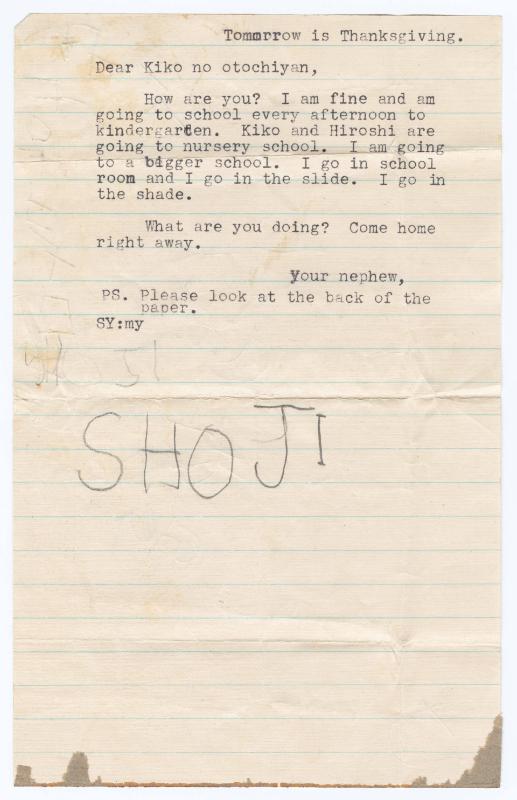 Tomorrow is Thanksgiving.
Dear Kiko no otochiyan,
How are you? I am fine and am
going to school every afternoon to
kindergarten. Kiko and Hiroshi are
going to nursery school. I am going
to a bigger school. I go in school
room and I go in the slide. I go in
the shade.
What are you doing? Come home
right away.
Your nephew,
PS. Please look at the back of the
paper.
SY:my
SHOJI
SHOJI